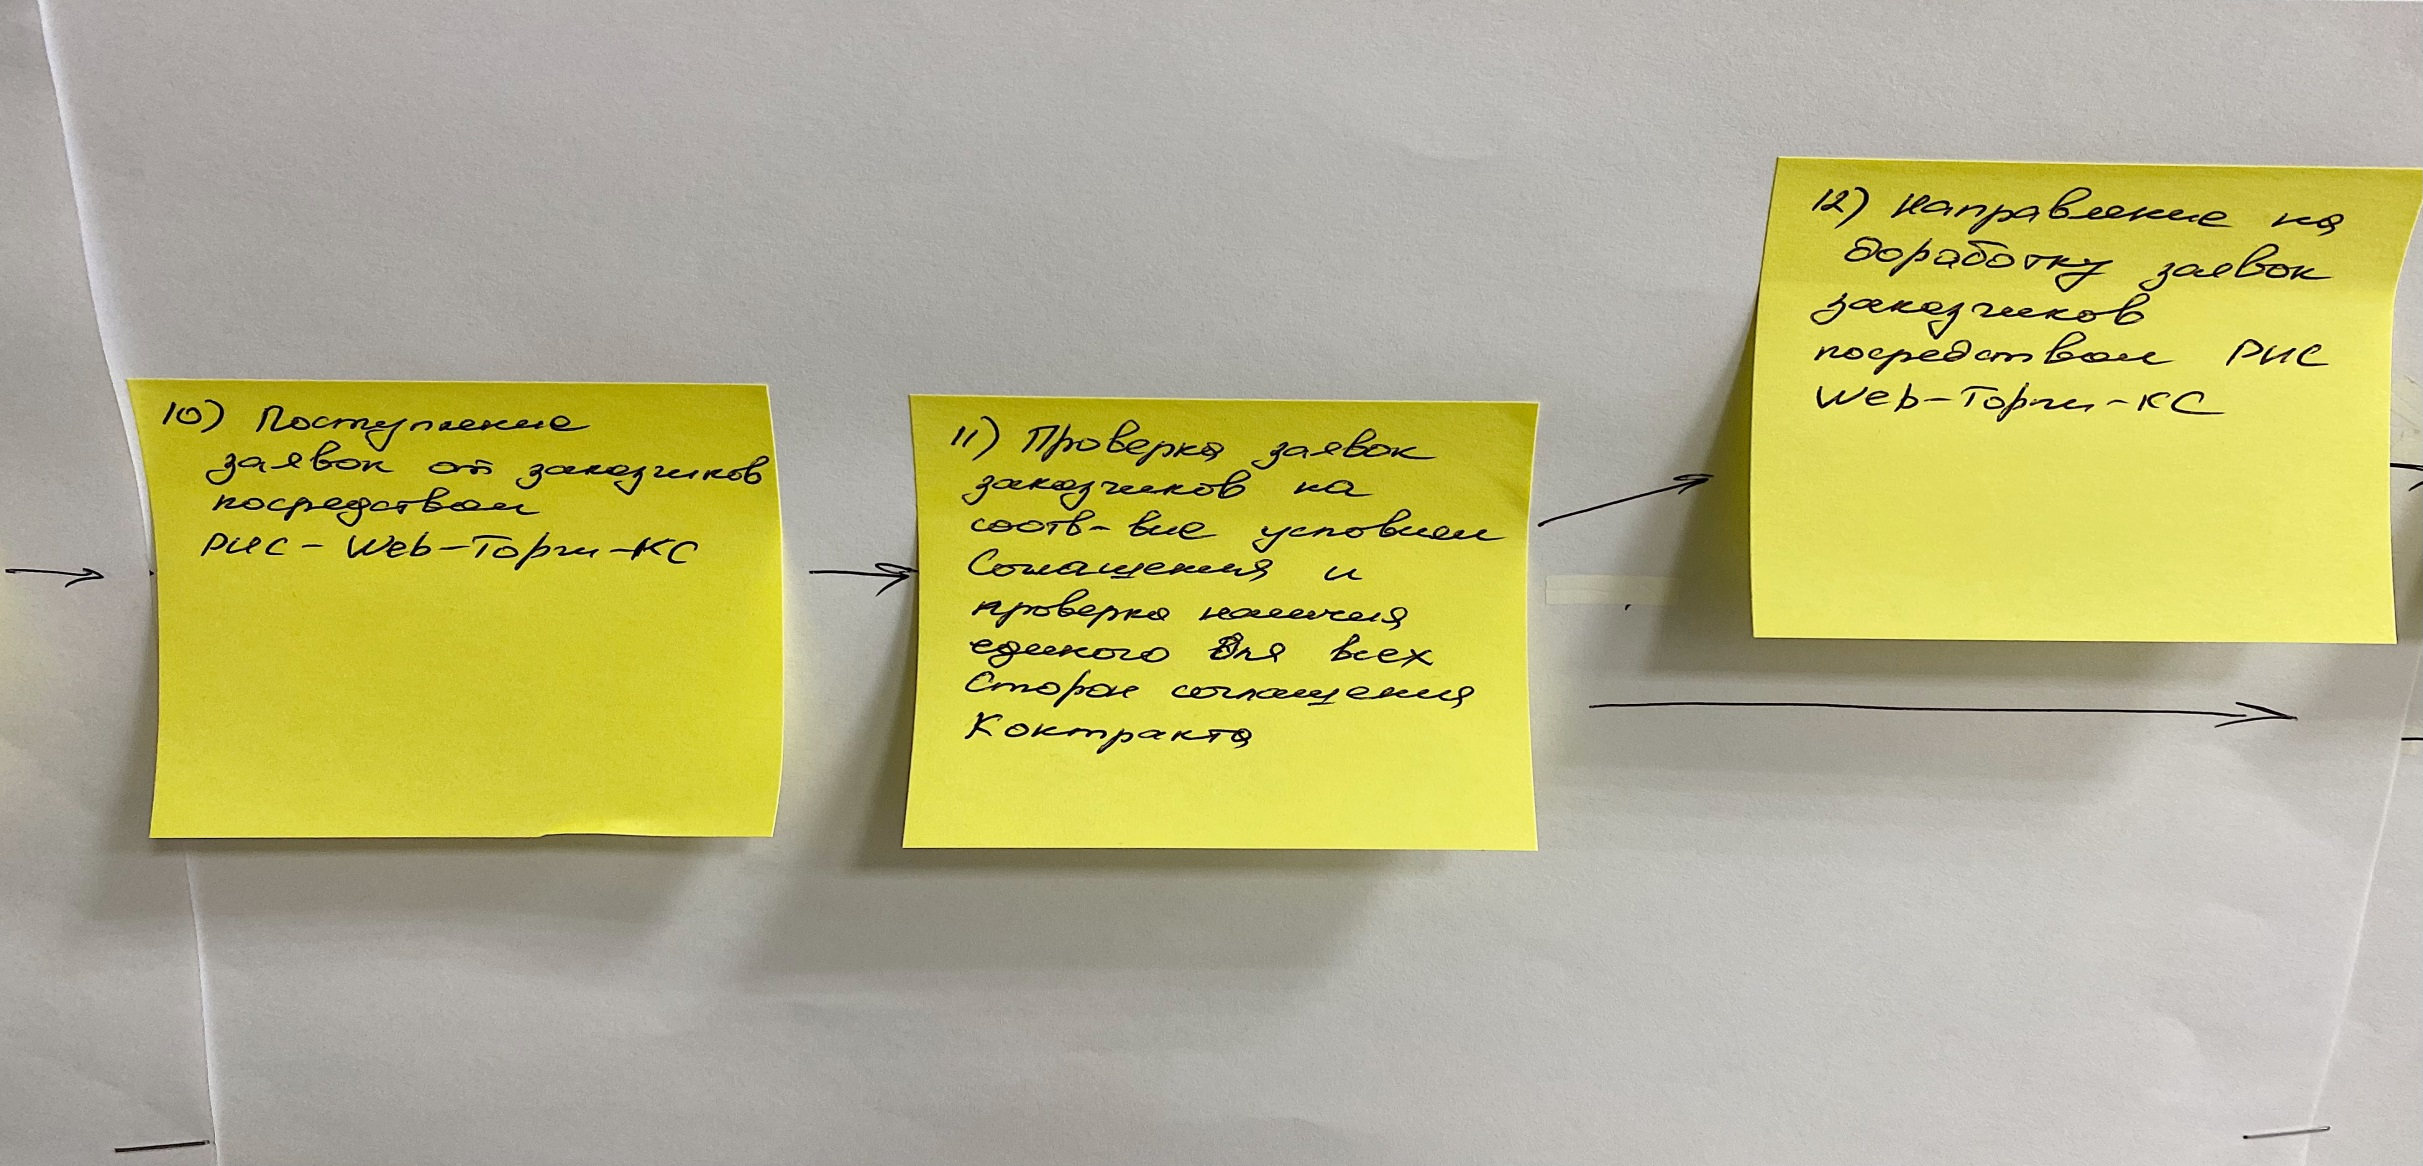 10) Поступление
заявок от заказчиков
посредством
РИС - Web-Торги-КС
11) Проверка заявок
заказчиков на
соотв-вие условиям
Соглашения и
проверка наличия
единого для всех
Сторон соглашения
Контракта
12) Направление на
доработку заявок
заказчиков
посредством РИС
Web-Торги-КС